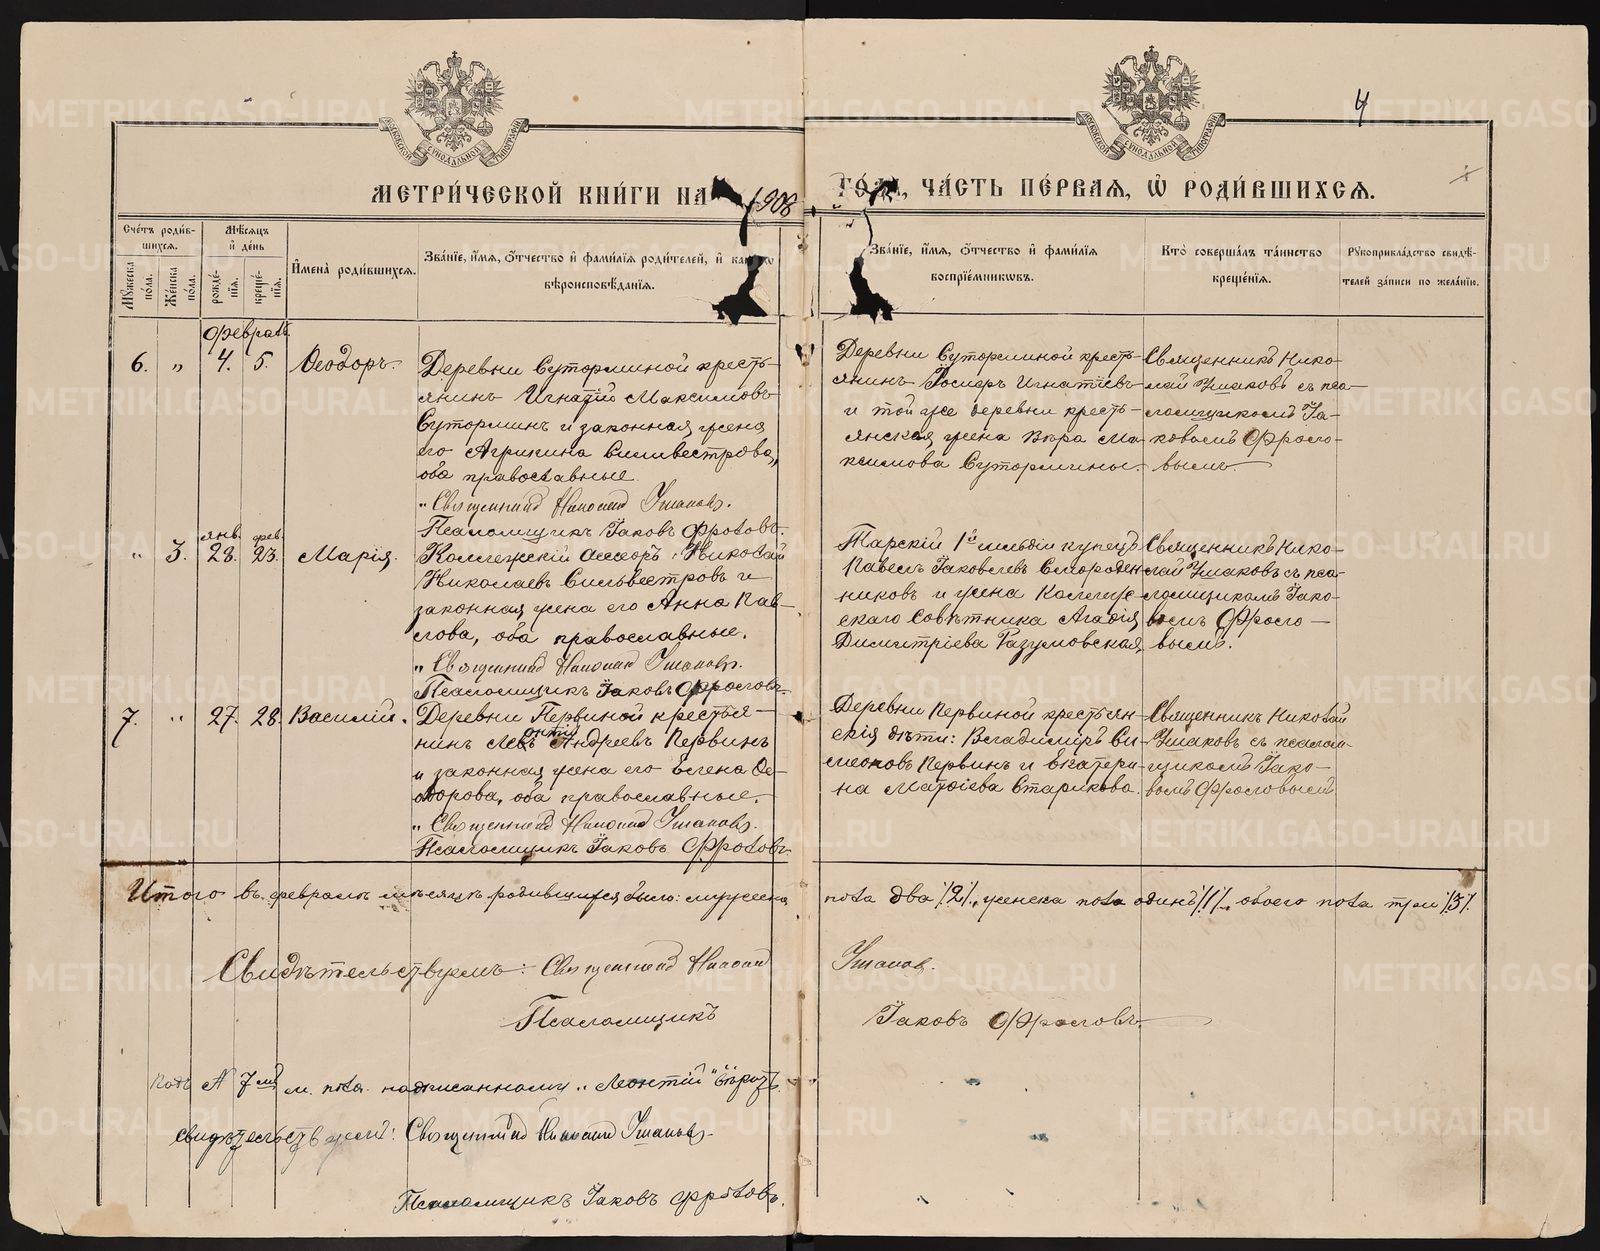 4
МЕТРИ́ЧЕСКОЙ КНИ́ГИ НА 1908 ГО́ДЪ, ЧА́СТЬ ПЕ́РВАЯ, Ѡ҆ РОДИ́ВШИХСЯ.
Сче́тъ роди́вшихся.
Му́жеска по́ла.
Же́нска по́ла.
Мѣ́сяцъ и҆ де́нь
рожде́нїя.
креще́нїя.
И҆мена̀ роди́вшихся.
Зва́нїе, и҆́мя, ѻ҆́тчество и҆ фами́лїя роди́телей, и҆ како́гѡ
вѣроисповѣ́данїя.
Зва́нїе, и҆́мя, ѻ҆́тчество и҆ фами́лїя
воспрїе́мникѡвъ.
Кто̀ соверша́лъ та́инство
креще́нїя.
Рꙋкоприкла́дство свидѣ́-
телей за́писи по жела́нїю.
Февраль
6. „ 4. 5. Ѳеодоръ.
Деревни Суторминой кресть-
янинъ Игнатій Максимовъ
Суторминъ и законная жена
его Агрипина Силивестрова,
оба православные.
„ Священникъ Николай Ушаковъ.
Псаломщикъ Іаковъ Фроловъ.
Деревни Суторминой кресть-
янинъ Іосифъ Игнатіевъ
и той же деревни кресть-
янская жена Вѣра Ма-
ксимова Сутормины.
Священникъ Нико-
лай Ушаковъ съ пса-
ломщикомъ Іа-
ковомъ Фроло-
вымъ.
„ 3. янв. 28. фев. 23. Марія.
Коллежскій ассесоръ Николай
Николаевъ Сильвестровъ и
законная жена его Анна Пав-
лова, оба православные.
„ Священникъ Николай Ушаковъ.
Псаломщикъ Іаковъ Фроловъ.
Тарскій 1й гильдіи купецъ
Павелъ Іаковлевъ Смороден-
никовъ и жена Коллеж-
скаго Совѣтника Агадія
Димитріева Разумовская.
Священникъ Нико-
лай Ушаковъ съ пса-
ломщикомъ Іако-
вомъ Фроло-
вымъ.
7. „ 27. 28. Василій.
Деревни Первиной крестья-
нинъ Левъ Андреевъ Первинъ
онтій
и законная жена его Елена Ѳе-
одорова, оба православные.
„ Священникъ Николай Ушаковъ.
Псаломщикъ Іаковъ Фроловъ.
Деревни Первиной крестьян-
скія дѣти: Владиміръ Си-
меоновъ Первинъ и Екатери-
на Матѳіева Старикова.
Священникъ Николай
Ушаковъ съ псалом-
щикомъ Іако-
вомъ Фроловымъ.
Итого въ февралѣ мѣсяцѣ родившихся было: мужеска пола два /2/, женска пола одинъ /1/, обоего пола три /3/.
Свидѣтельствуемъ: Священникъ Николай Ушаковъ.
Псаломщикъ Іаковъ Фроловъ.
Подъ № 7мъ м. пола надписанному „Леонтій" вѣрить.
свидѣтельствуемъ: Священникъ Николай Ушаковъ.
Псаломщикъ Іаковъ Фроловъ.
METRIKI.GASO-URAL.RU